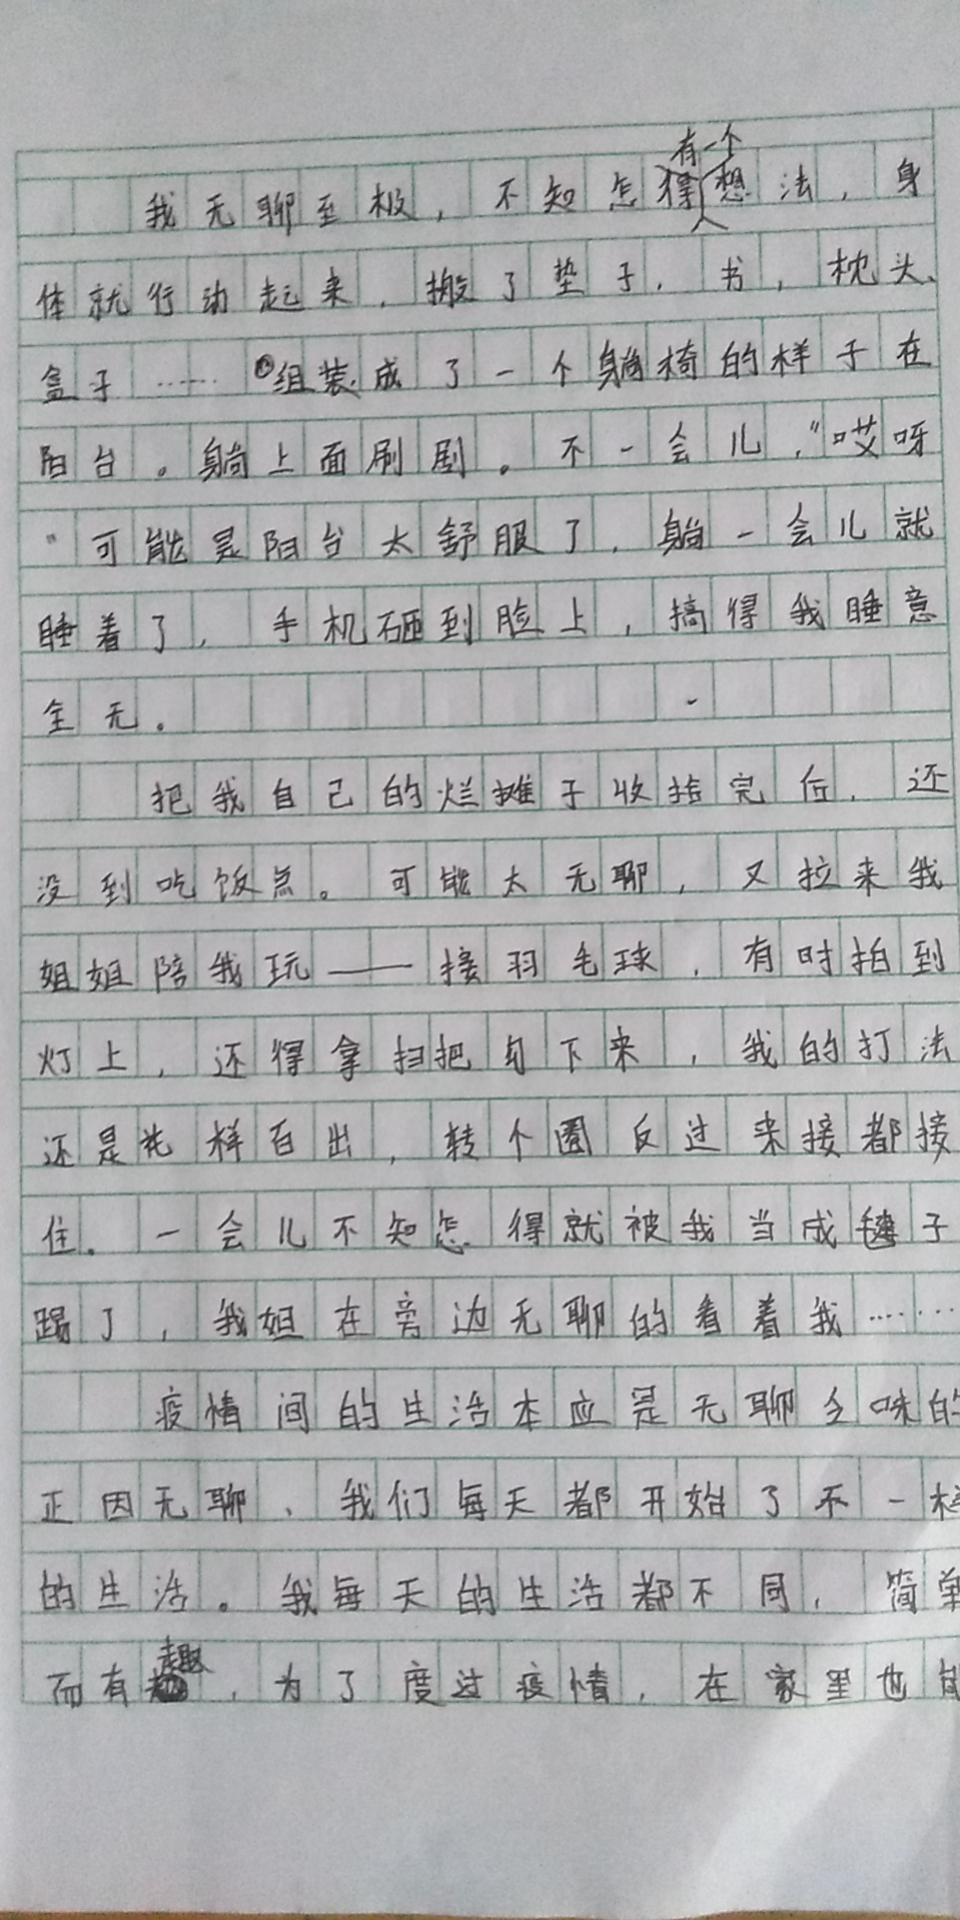 我无聊至极，不知怎得有一个想法，身
体就行动起来，搬了垫子，书，枕头、
盒子……组装成了一个躺椅的样子在
阳台。躺上面刷剧。不一会儿，“哎呀
”可能是阳台太舒服了，躺一会儿就
睡着了，手机砸到脸上，搞得我睡意
全无。
把我自己的烂摊子收拾完后，还
没到吃饭点。可能太无聊，又拉来我
姐姐陪我玩——接羽毛球，有时拍到
灯上，还得拿扫把勾下来，我的打法
还是花样百出，转个圈反过来接都接
住。一会儿不知怎得就被我当成毽子
踢了，我姐在旁边无聊的看着我……
疫情间的生活本应是无聊乏味的
正因无聊、我们每天都开始了不一样
的生活。我每天的生活都不同，简单
而有趣，为了度过疫情，在家里也能